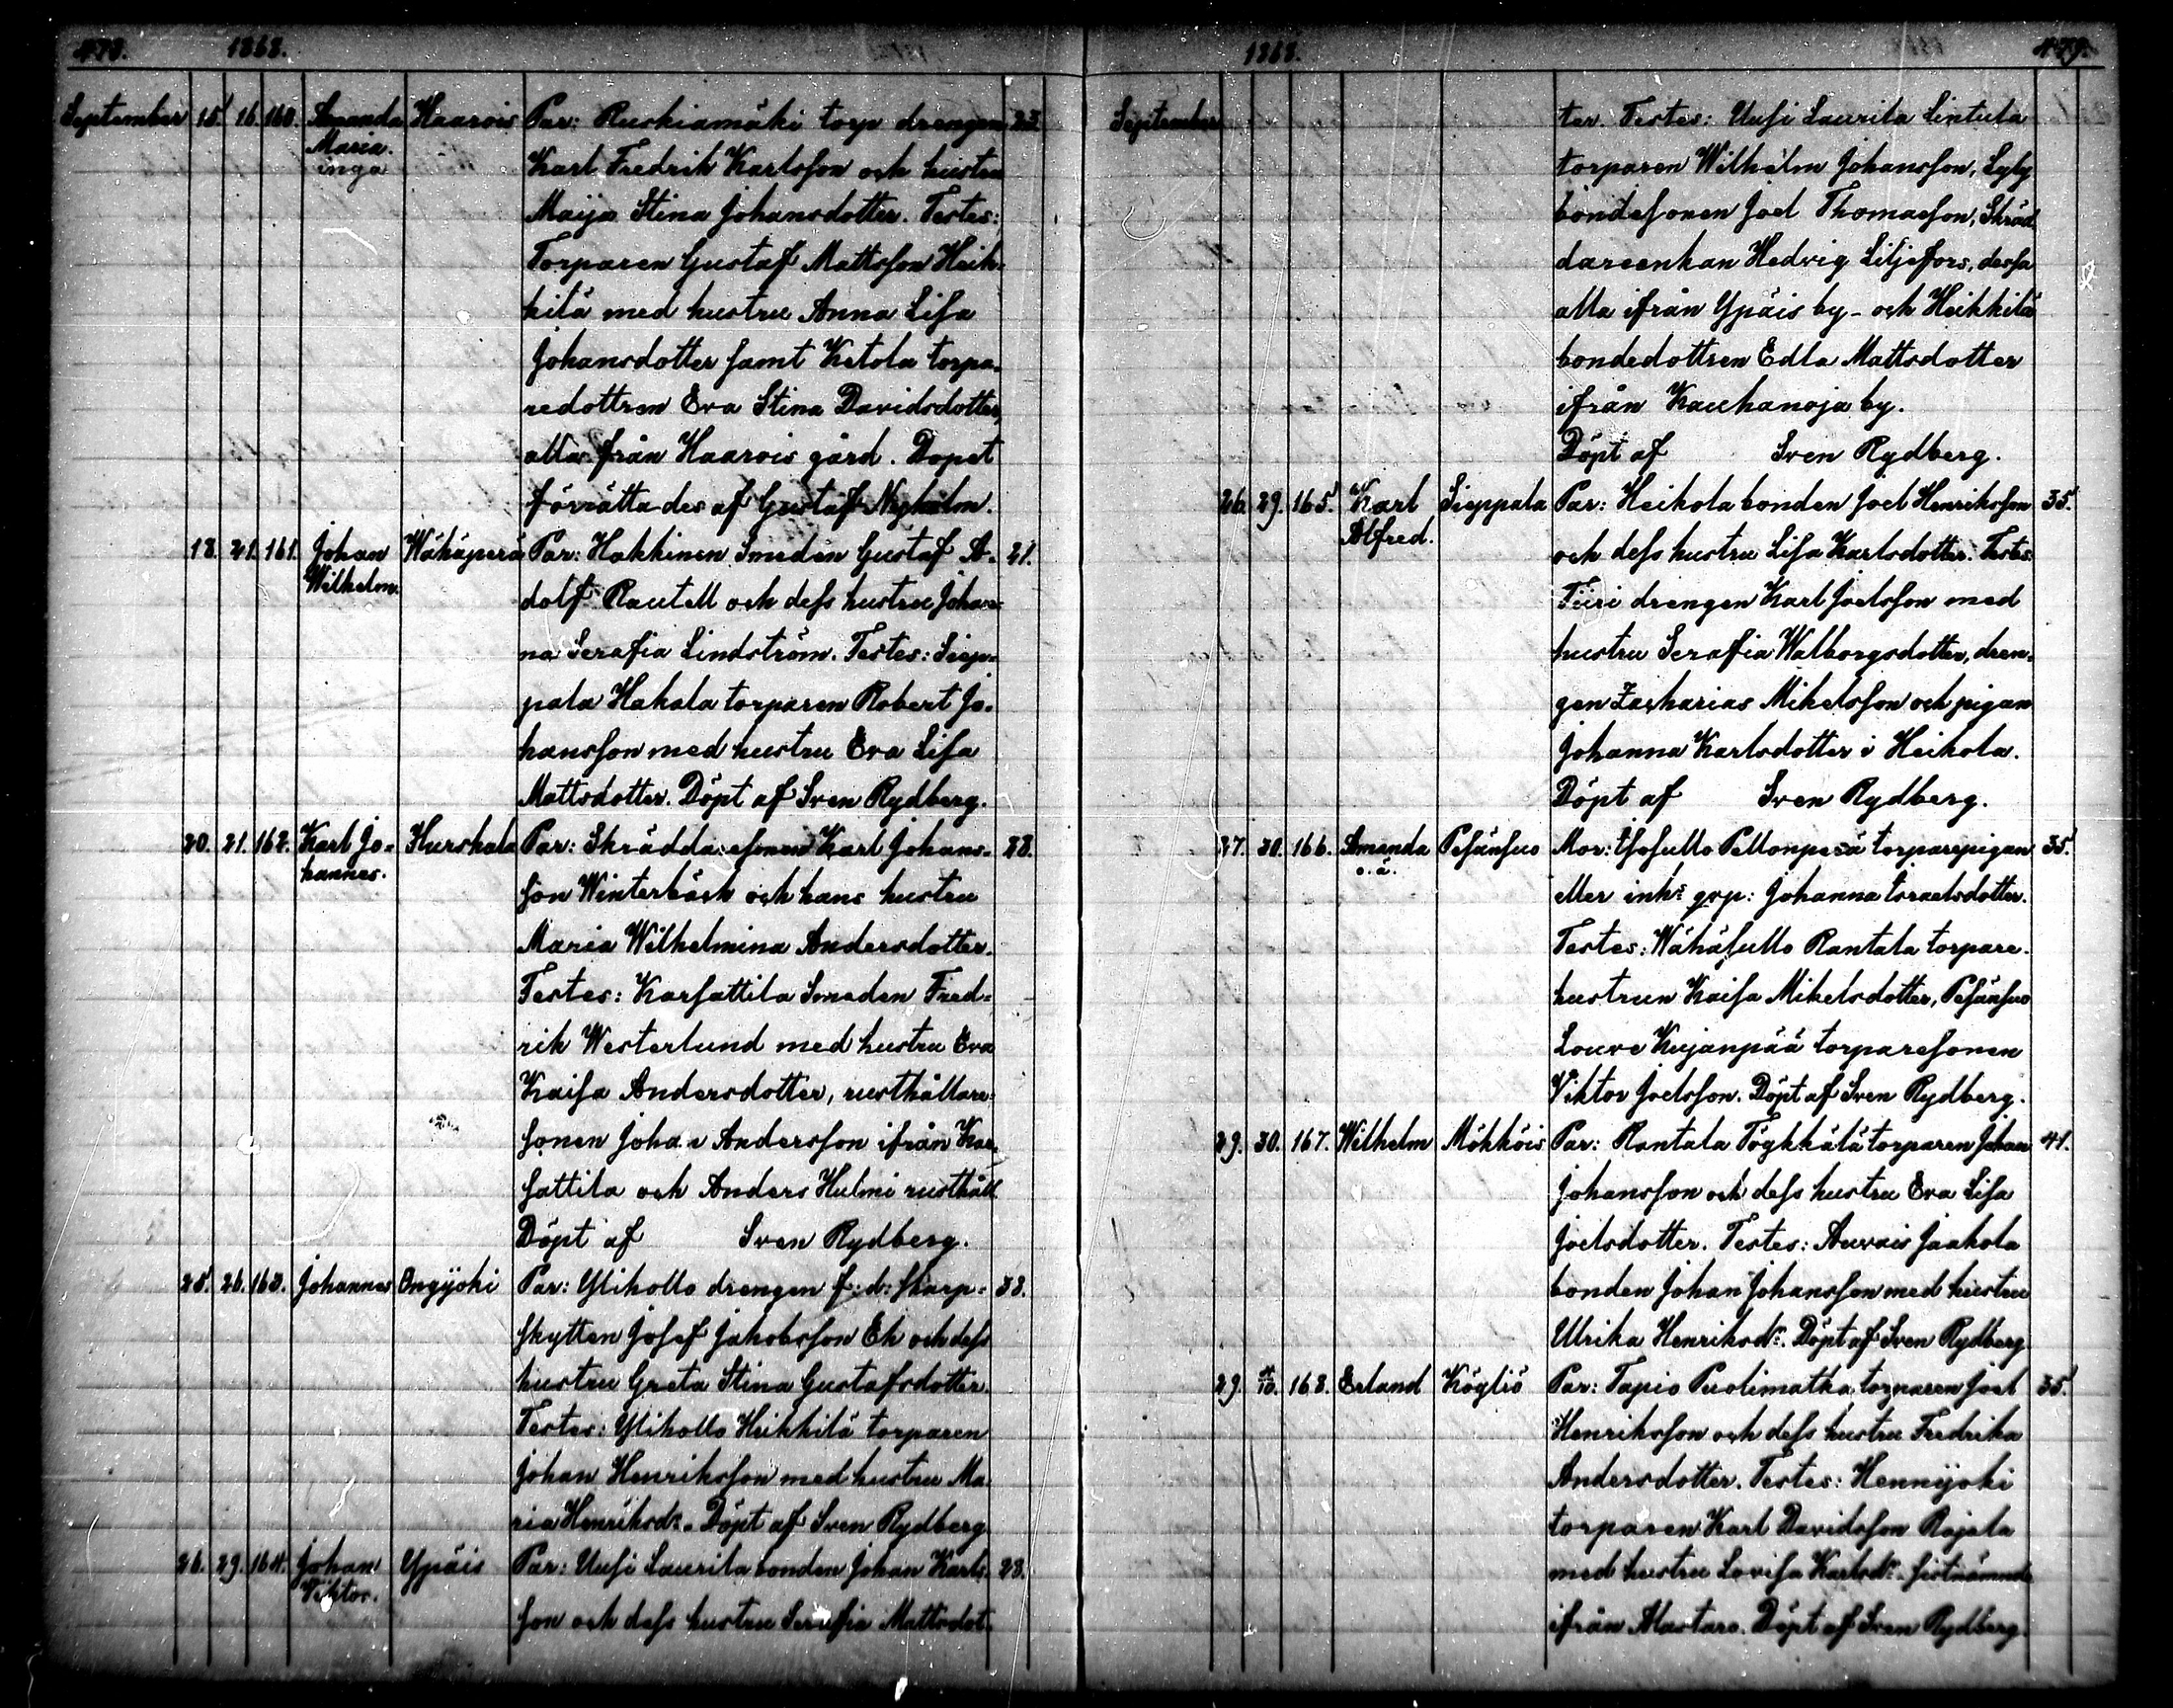 478. 1868.
September 15. 16. 160. Amanda Haarois Par: Ruskiamäki torp drengen 23.
Maria. Karl Fredrik Karlsson och hustru
inga
Maija Stina Johansdotter. Testes:
Torparen Gustaf Mattsson Heik-
kilä med hustru Anna Lisa
Johansdotter samt Ketola torpa-
redottren Eva Stina Davidsdotter,
alla från Haarois gård. Dopet
förrättades af Gustaf Nyholm.
18. 21. 161. Johan Wähäperä Par: Hakkinen Smeden Gustaf A- 21.
Wilhelm. dolf Rautell och dess hustru Johan-
na Serafia Lindström. Testes: Siep-
pala Hakala torparen Robert Jo-
hansson med hustru Eva Lisa
Mattsdotter. Döpt af Sven Rydberg.
20. 21. 162. Karl Jo- Hurskala Par: Skräddaresonen Karl Johans- 28.
hannes. son Winterbäck och hans hustru
Maria Wilhelmina Andersdotter.
Testes: Karsattila Smeden Fred-
rik Westerlund med hustru Eva
Kaisa Andersdotter, rusthållare-
sonen Johan Andersson ifrån Kar-
sattila och Anders Hulmi rusthåll
Döpt af Sven Rydberg.
25. 26. 163. Johannes Ongijoki Par: Ylikollo drengen f: d: skarp- 33.
skytten Josef Jakobsson Ek och dess
hustru Greta Stina Gustafsdotter.
Testes: Ylikollo Heikkilä torparen
Johan Henriksson med hustru Ma-
ria Henriksdr. Döpt af Sven Rydberg
26. 29. 164. Johan Ypäis Par: Uusi Laurila bonden Johan Karls- 23.
Viktor. son och dess hustru Serafia Mattsdot-
1868. 479.
September ter. Testes: Uusi Laurila Lintula
torparen Wilhelm Johansson, Syly
bondesonen Joel Thomasson, Skräd-
dareenkan Hedvig Liljefors, dessa
alla ifrån Ypäis by - och Heikkilä
bondedottren Edla Mattsdotter
ifrån Kauhanoja by.
Döpt af Sven Rydberg.
26. 29. 165. Karl Sieppala Par: Heikola bonden Joel Henriksson 35.
Alfred. och dess hustru Lisa Karlsdotter. Testes:
Tiiri drengen Karl Joelsson med
hustru Serafia Walborgsdotter, dren-
gen Zacharias Mikelsson och pigan
Johanna Karlsdotter i Heikola.
Döpt af Sven Rydberg.
27. 30. 166. Amanda Pesänsuo Mor: Isosullo Peltonperä torparepigan 35.
o. ä. eller inhs grp: Johanna Israelsdotter.
Testes: Wähäsullo Rantala torpare-
hustrun Kaisa Mikelsdotter, Pesänsuo
Louve Kujanpää torparesonen
Viktor Joelsson. Döpt af Sven Rydberg.
29. 30. 167. Wilhelm Mökköis Par: Rantala Töykkälä torparen Johan 41.
Johansson och dess hustru Eva Lisa
Joelsdotter. Testes: Auvais Jaakola
bonden Johan Johansson med hustru
Ulrika Henriksdr. Döpt af Sven Rydberg
29. 4/10. 168. Erland Köyliö Par: Tapio Puolimatka torparen Joel 35.
Henriksson och dess hustru Fredrika
Andersdotter. Testes: Hennijoki
torparen Karl Davidsson Rajala
med hustru Lovisa Karlsdr. sistnämnde
ifrån Alastaro. Döpt af Sven Rydberg.